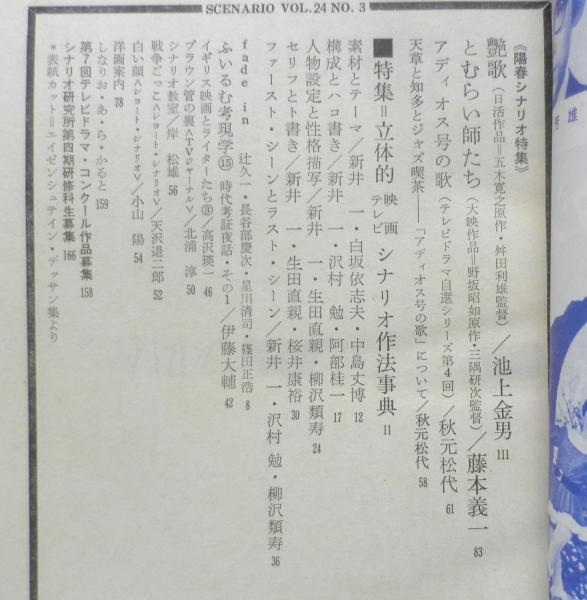 SCENARIO VOL.24 NO. 3
《陽春シナリオ特集》
艶歌(日活作品=五木寛之原作・舛田利雄監督)/池上金男 111
とむらい師たち(大映作品=野坂昭如原作・三隅研次監督)/藤本義一 83
アディオス号の歌(テレビドラマ自選シリーズ第4回)/秋元松代 61
天草と知多とジャズ喫茶――「アディオス号の歌」について/秋元松代 58
■特集=立体的 映画テレビ シナリオ作法事典 11
素材とテーマ/新井 一・白坂依志夫・中島丈博 12
構成とハコ書き/新井 一・沢村 勉・阿部桂一 17
人物設定と性格描写/新井 一・生田直親・柳沢類寿 24
セリフとト書き/新井 一・生田直親・桜井康裕 30
ファースト・シーンとラスト・シーン/新井 一・沢村 勉・柳沢類寿 36
fade in 辻久一・長谷部慶次・星川清司・篠田正浩 8
ふいるむ考現学⑮ 時代考証夜話・その1/伊藤大輔 42
イギリス映画とライターたち③/高沢瑛一 46
ブラウン管の裏<TVジャーナル>/北浦 淳 50
シナリオ教室/岸 松雄 56
戦争ごっこ<ショート・シナリオ>/天沢退二郎 52
白い顔<ショート・シナリオ>/小山 陽 54
洋画案内 78
しなりお・あ・ら・かると 159
第7回テレビドラマ・コンクール作品募集 158
シナリオ研究所第四期研修科生募集 166
*表紙カット=エイゼンシュテイン・デッサン集より
雄